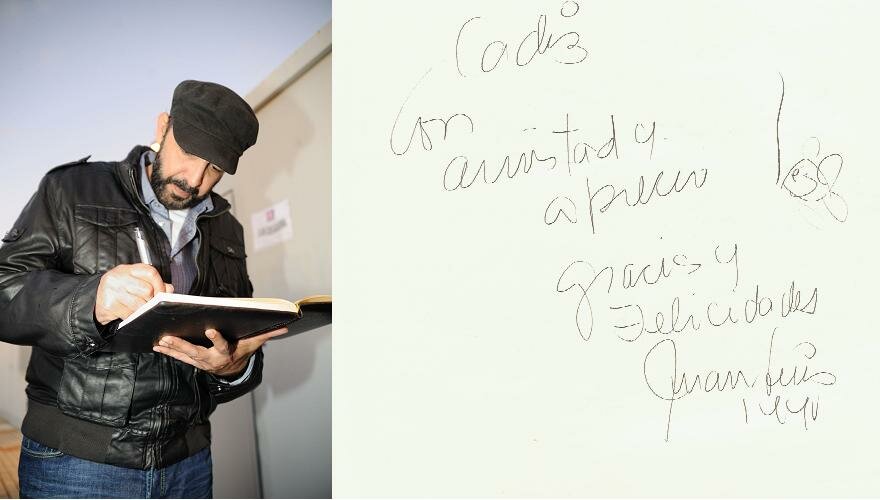 Cadiz
Con
amistad y
aprecio
gracias y
Felicidades
Juan Luis